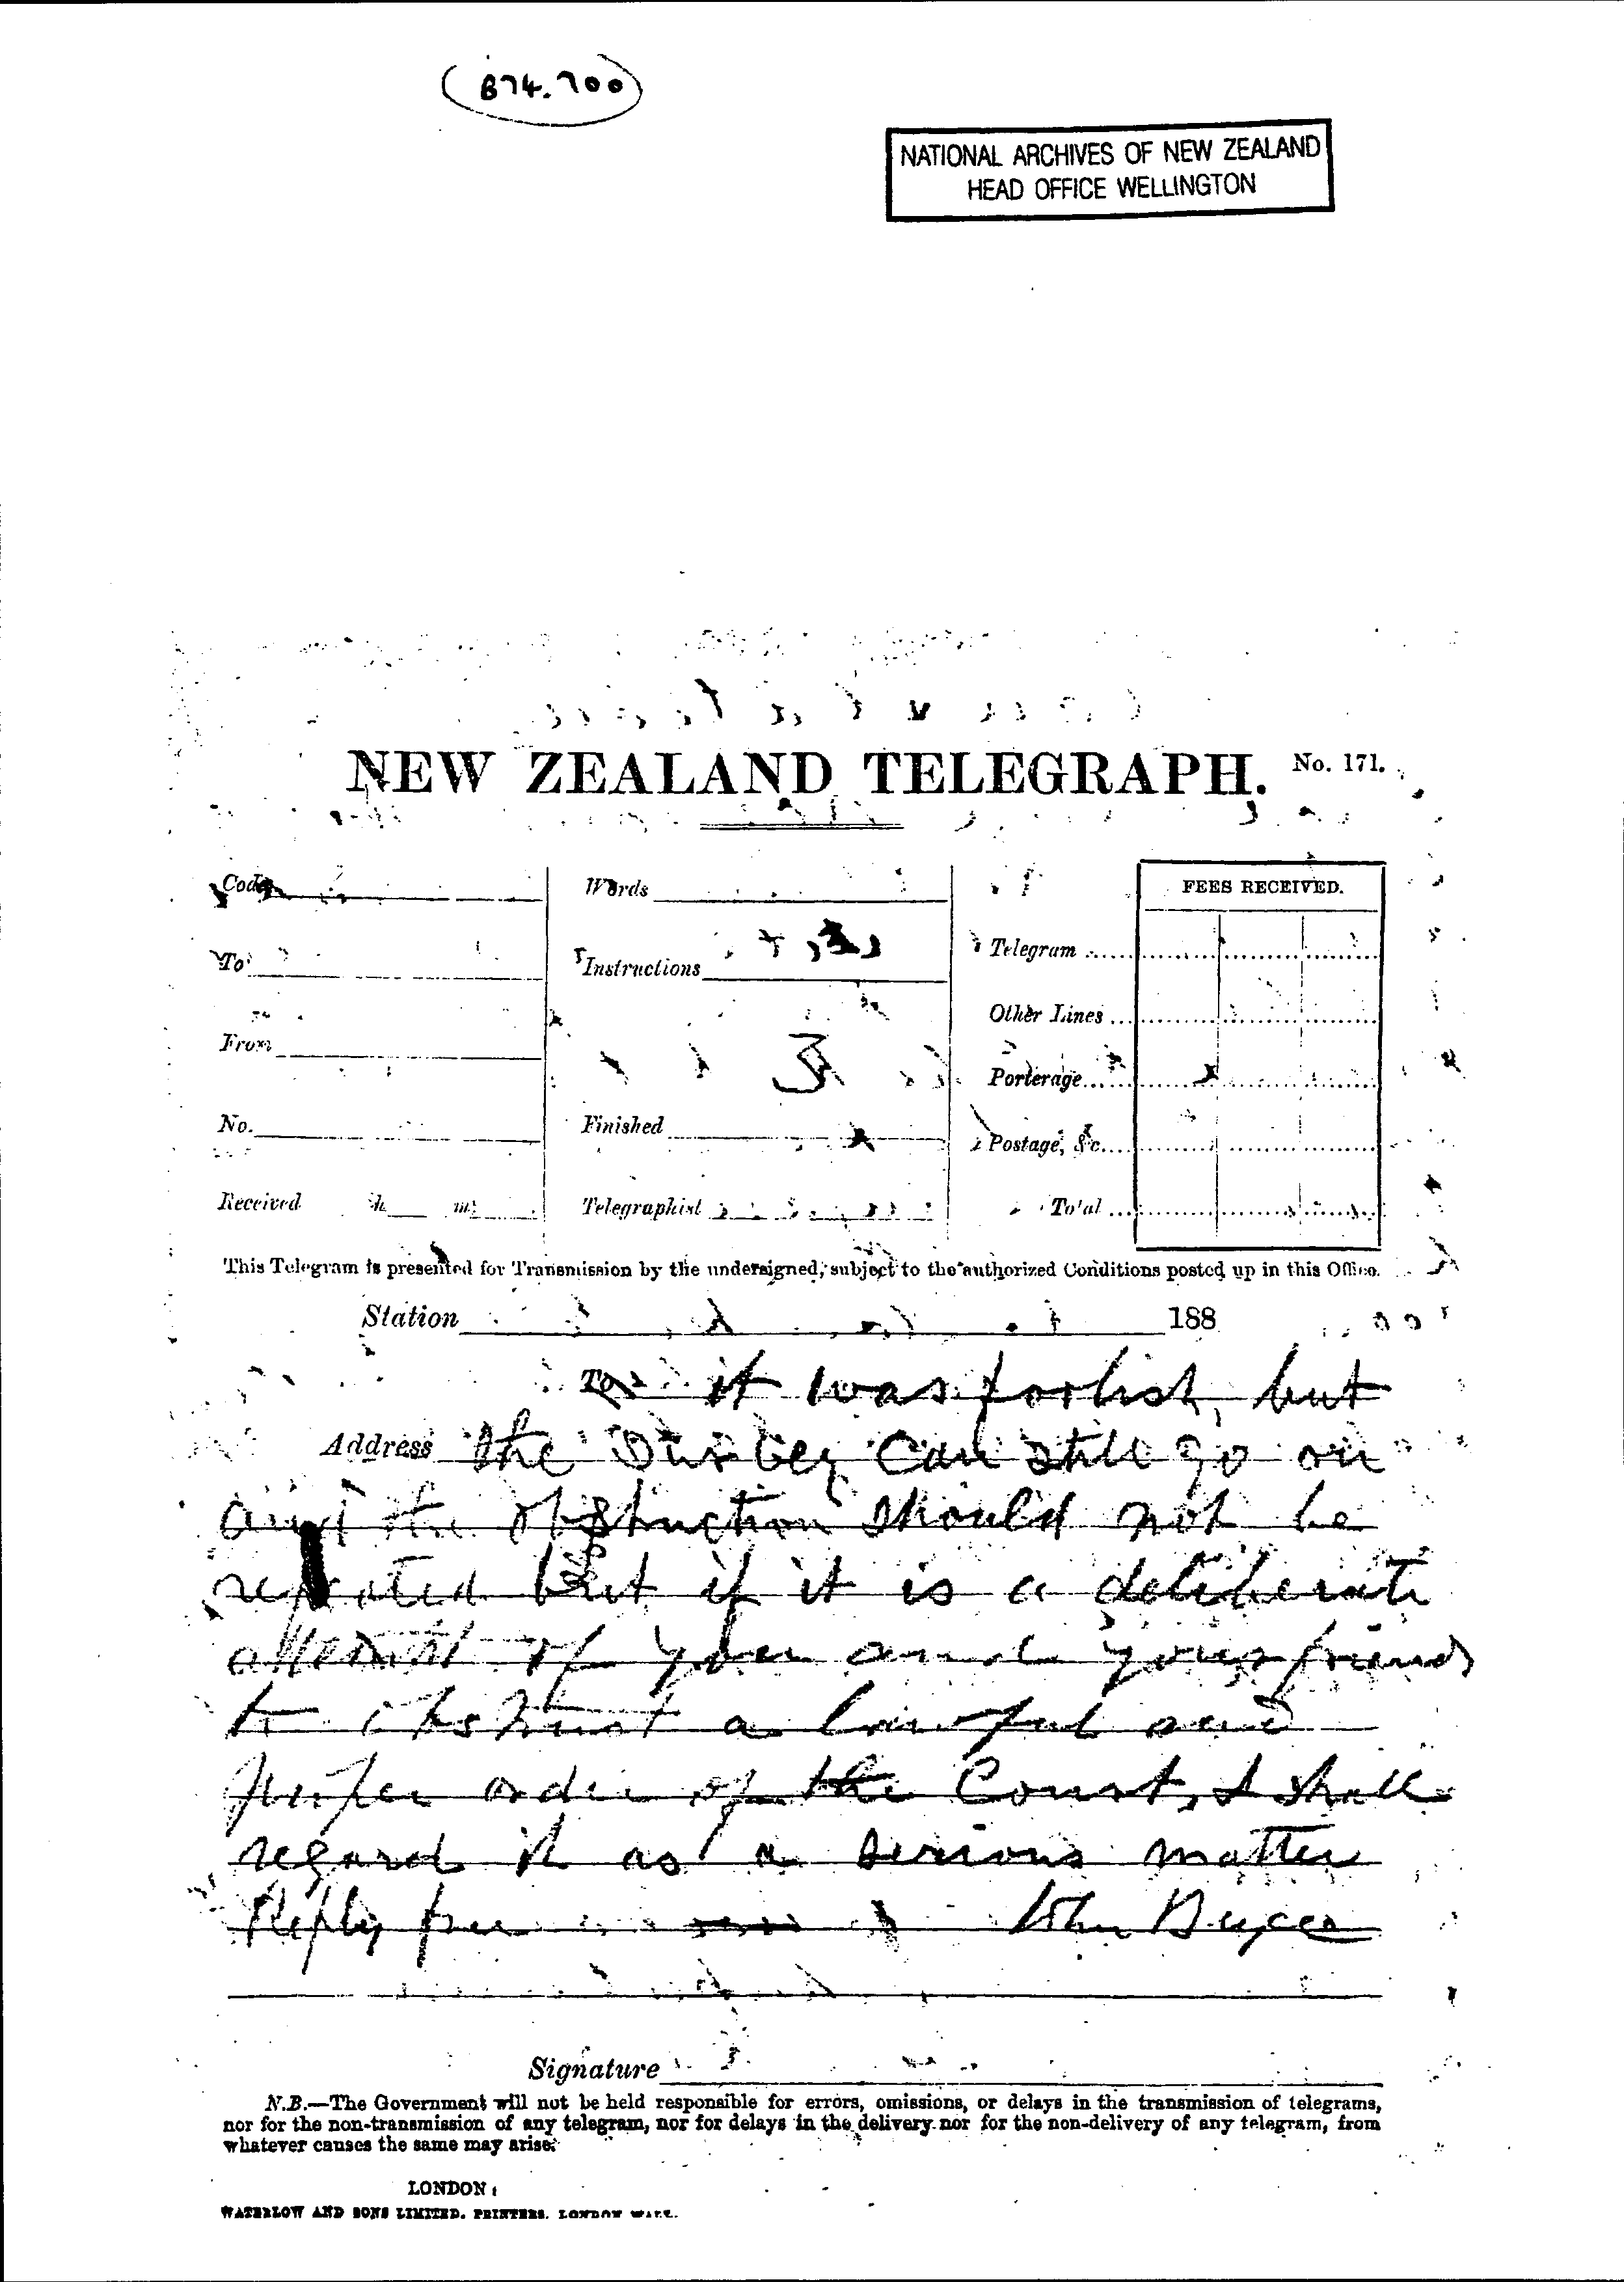 (B74.700)
NATIONAL ARCHIVES OF NEW ZEALAND
HEAD OFFICE WELLINGTON
NEW ZEALAND TELEGRAPH. No. 171.
Code
Words
FEES RECEIVED.
To
Instructions
Telegram
Other Lines
From
3
Porterage
No.
Finished
Postage, &c.
Received h m
Telegraphist
Total
This Telegram is presented for Transmission by the undersigned, subject to the authorized Conditions posted up in this Office.
Station 188
To it was foolish, but
Address the Survey can still go on
and the obstruction should not be
repeated But if it is a deliberate
attempt of you and your friends
to obstruct a lawful and
proper order of the Court, I shall
regard it as a serious matter
Reply free John Bryce
Signature
N.B.—The Government will not be held responsible for errors, omissions, or delays in the transmission of telegrams,
nor for the non-transmission of any telegram, nor for delays in the delivery nor for the non-delivery of any telegram, from
whatever causes the same may arise.
LONDON:
WATERLOW AND SONS LIMITED. PRINTERS. LONDON WALL.